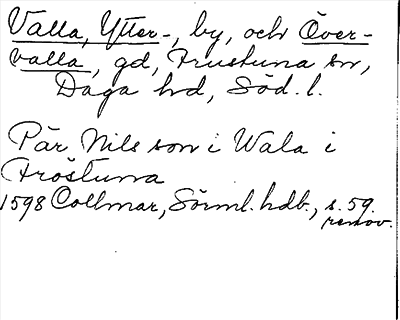 Valla, Ytter-, by, och Över-
valla, gd, Frustuna sn,
Daga hd, Söd. l.
Pär Nilsson i Wala i
Fröstuna
1598 Collmar, Sörml. hdb., s. 59.
renov.